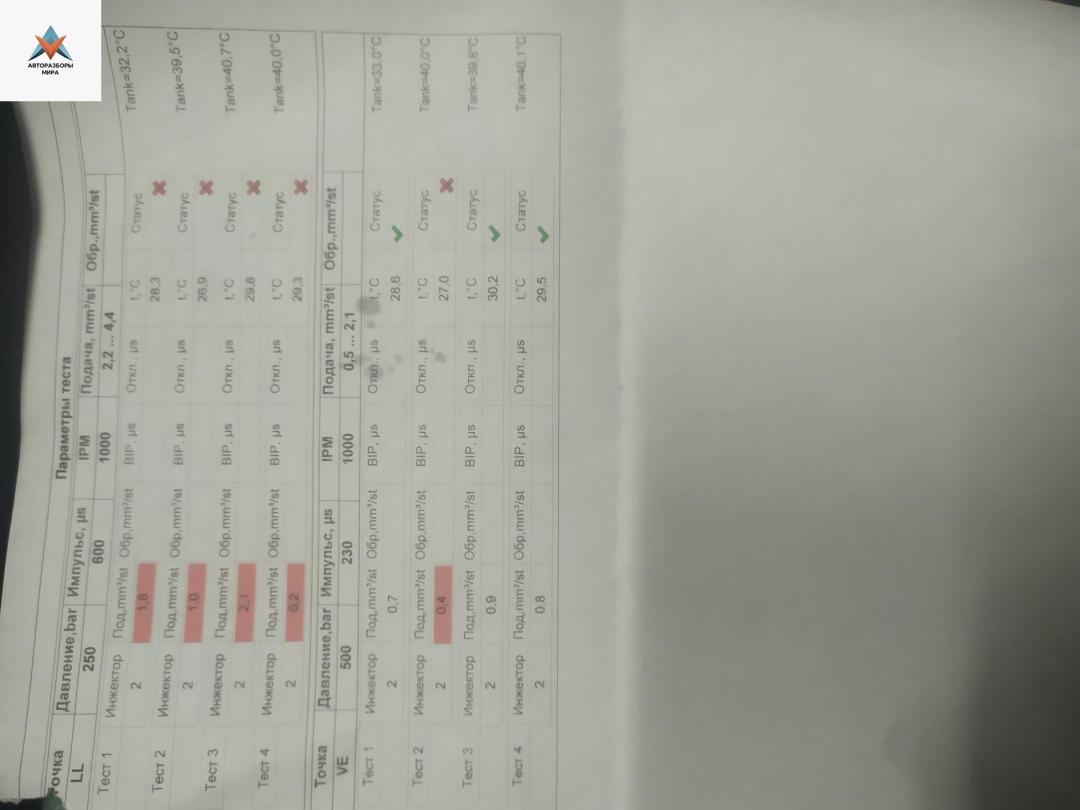 АВТОРАЗБОРЫ
МИРА
Параметры теста
Точка Давление,bar Импульс, µs IPM Подача, mm³/st Обр.,mm³/st
LL 250 600 1000 2,2 ... 4,4
Тест 1 Инжектор Под,mm³/st Обр,mm³/st BIP, µs Откл., µs t,°C Статус Tank=32,2°C
2 1,8 28,3
Тест 2 Инжектор Под,mm³/st Обр,mm³/st BIP, µs Откл., µs t,°C Статус Tank=39,5°C
2 1,0 26,9
Тест 3 Инжектор Под,mm³/st Обр,mm³/st BIP, µs Откл., µs t,°C Статус Tank=40,7°C
2 2,1 29,8
Тест 4 Инжектор Под,mm³/st Обр,mm³/st BIP, µs Откл., µs t,°C Статус Tank=40,0°C
2 0,2 29,3
Точка Давление,bar Импульс, µs IPM Подача, mm³/st Обр.,mm³/st
VE 500 230 1000 0,5 ... 2,1
Тест 1 Инжектор Под,mm³/st Обр,mm³/st BIP, µs Откл., µs t,°C Статус Tank=33,0°C
2 0,7 28,6
Тест 2 Инжектор Под,mm³/st Обр,mm³/st BIP, µs Откл., µs t,°C Статус Tank=40,0°C
2 0,4 27,0
Тест 3 Инжектор Под,mm³/st Обр,mm³/st BIP, µs Откл., µs t,°C Статус Tank=39,8°C
2 0,9 30,2
Тест 4 Инжектор Под,mm³/st Обр,mm³/st BIP, µs Откл., µs t,°C Статус Tank=40,1°C
2 0,8 29,5